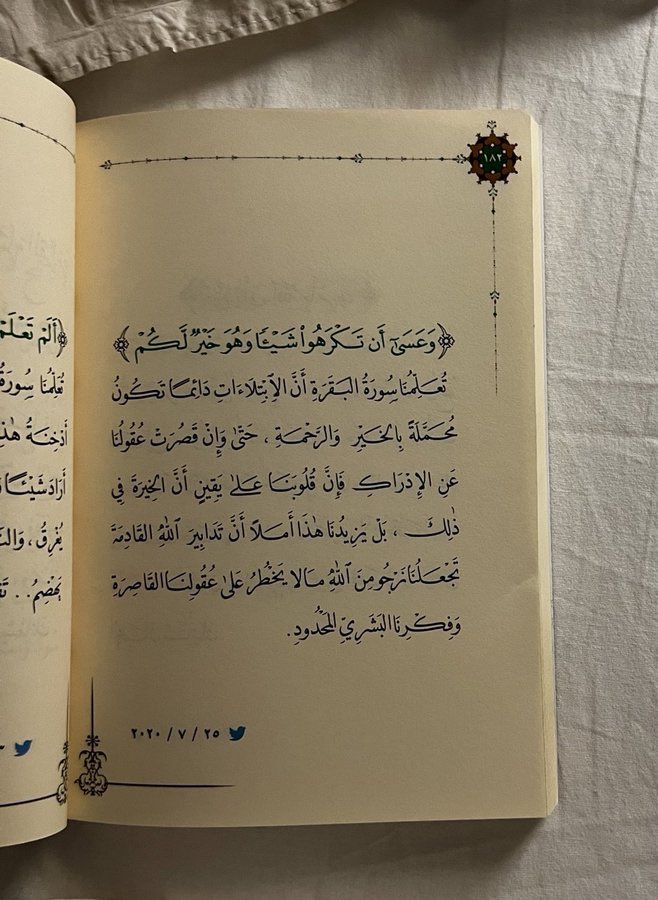 ١٨٢
﴿وَعَسَىٰٓ أَن تَكۡرَهُوا۟ شَيۡـًٔا وَهُوَ خَيۡرٌ لَّكُمۡ﴾
تُعَلِّمُنَا سُورَةُ البَقَرَةِ أَنَّ الِابْتِلَاءَاتِ دَائِمًا تَكُونُ
مُحَمَّلَةً بِالخَيْرِ وَالرَّحْمَةِ ، حَتَّىٰ وَإِنْ قَصُرَتْ عُقُولُنَا
عَنِ الإِدْرَاكِ فَإِنَّ قُلُوبَنَا عَلَىٰ يَقِينٍ أَنَّ الخِيرَةَ فِي
ذَٰلِكَ ، بَلْ يَزِيدُنَا هَٰذَا أَمَلًا أَنَّ تَدَابِيرَ اللَّهِ القَادِمَةَ
تَجْعَلُنَا نَرْجُو مِنَ اللَّهِ مَا لَا يَخْطُرُ عَلَىٰ عُقُولِنَا القَاصِرَةِ
وَفِكْرِنَا البَشَرِيِّ المَحْدُودِ.
٢٥ / ٧ / ٢٠٢٠
﴿أَلَمۡ تَعۡلَمۡ
تُعَلِّمُنَا سُورَةُ
أَدْخِنَةُ هَٰذِ
أَرَادَ شَيْئًا
يُغْرِقُ، وَالنَّ